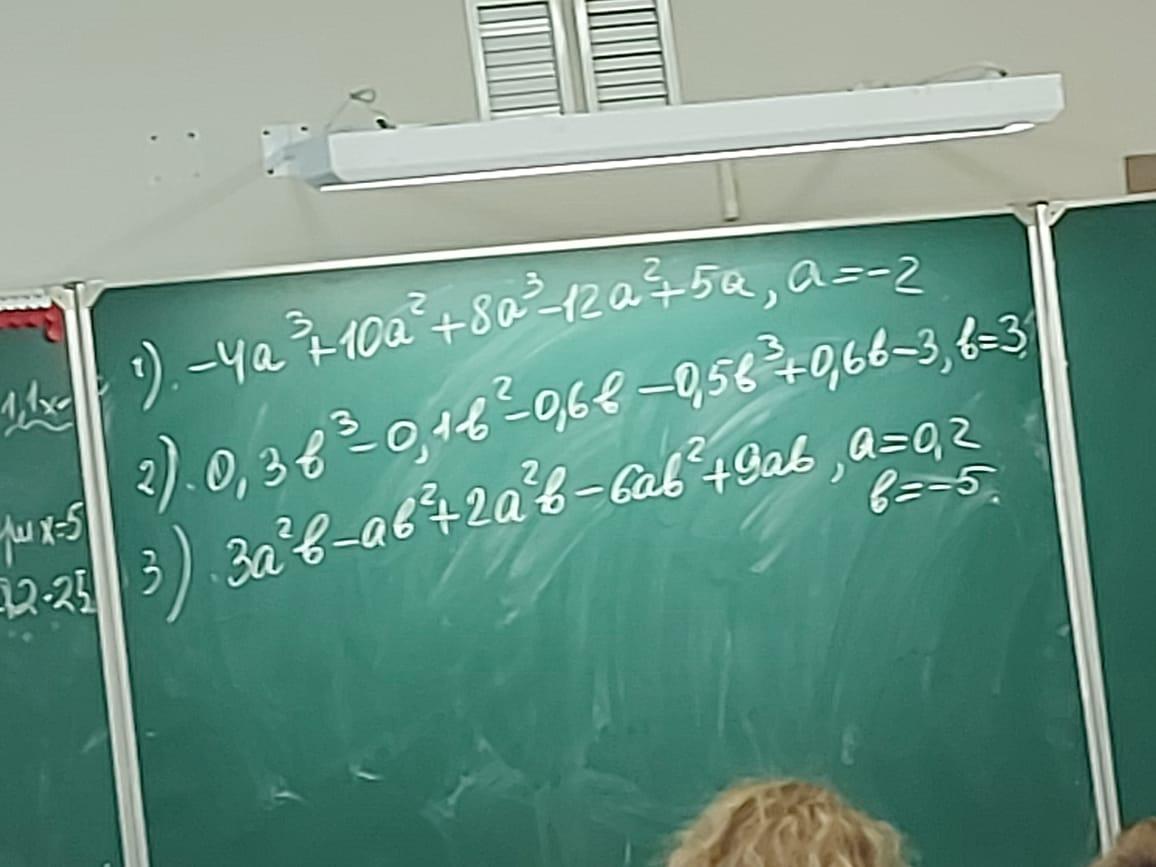 1,1x-
при x=5
1). -4a³+10a²+8a³-12a²+5a, a=-2
2). 0,3b³-0,1b²-0,6b-0,5b³+0,6b-3, b=3.
3). 3a²b-ab²+2a²b-6ab²+9ab, a=0,2
b=-5.